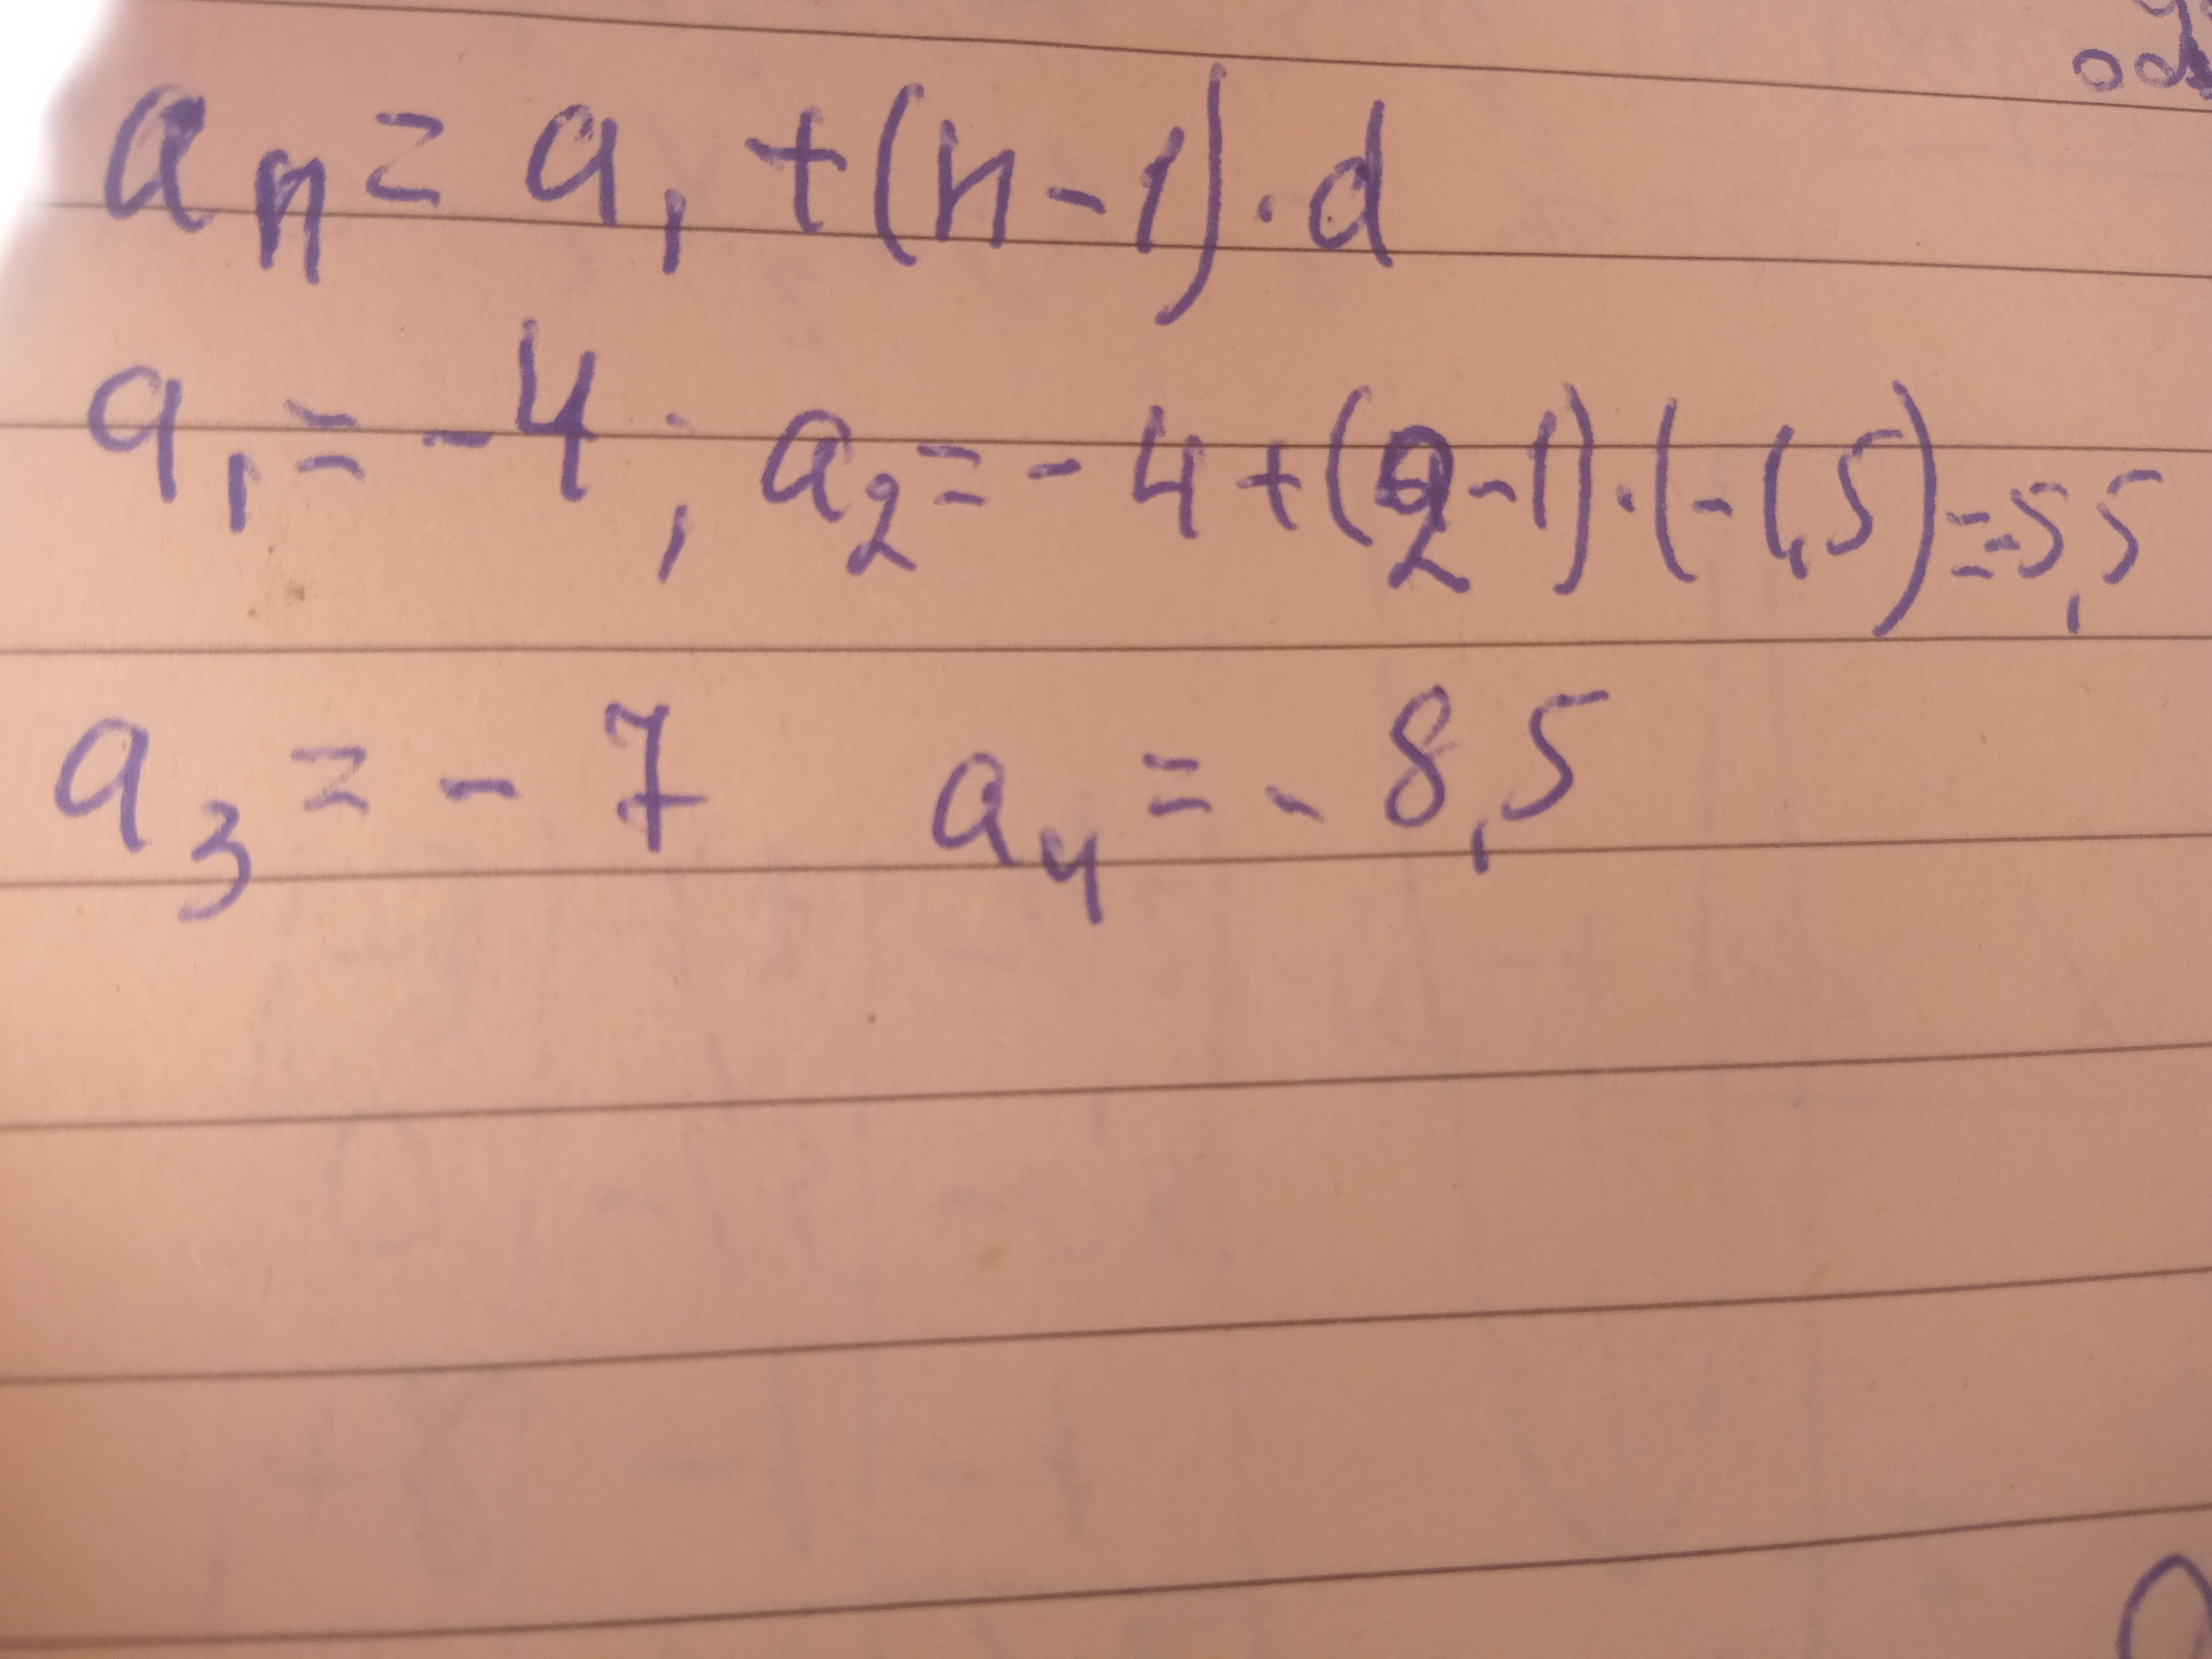 aₙ = a₁ + (n - 1) · d
a₁ = - 4 ; a₂ = - 4 + (2 - 1) · (- 1,5) = -5,5
a₃ = - 7 a₄ = - 8,5